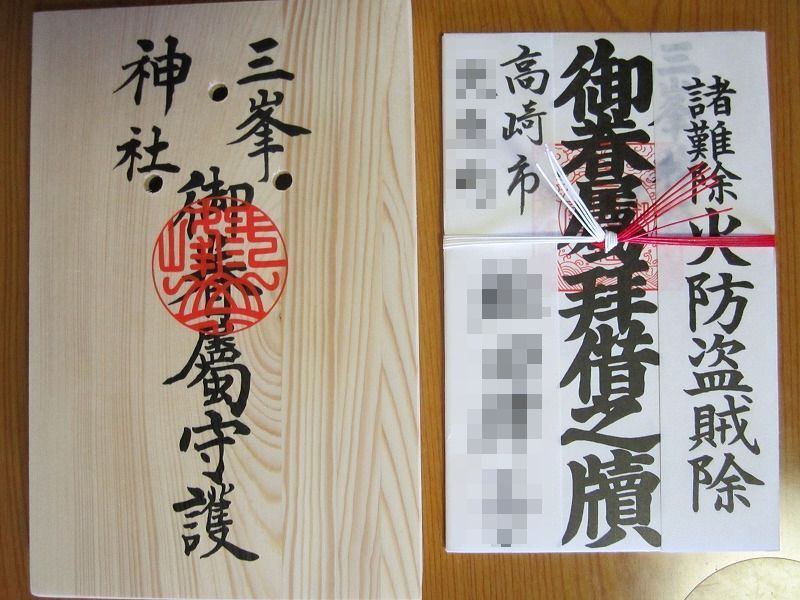 三峯
神社
御眷屬守護
諸難除火防盗賊除
御眷屬拜借之牘
高崎市